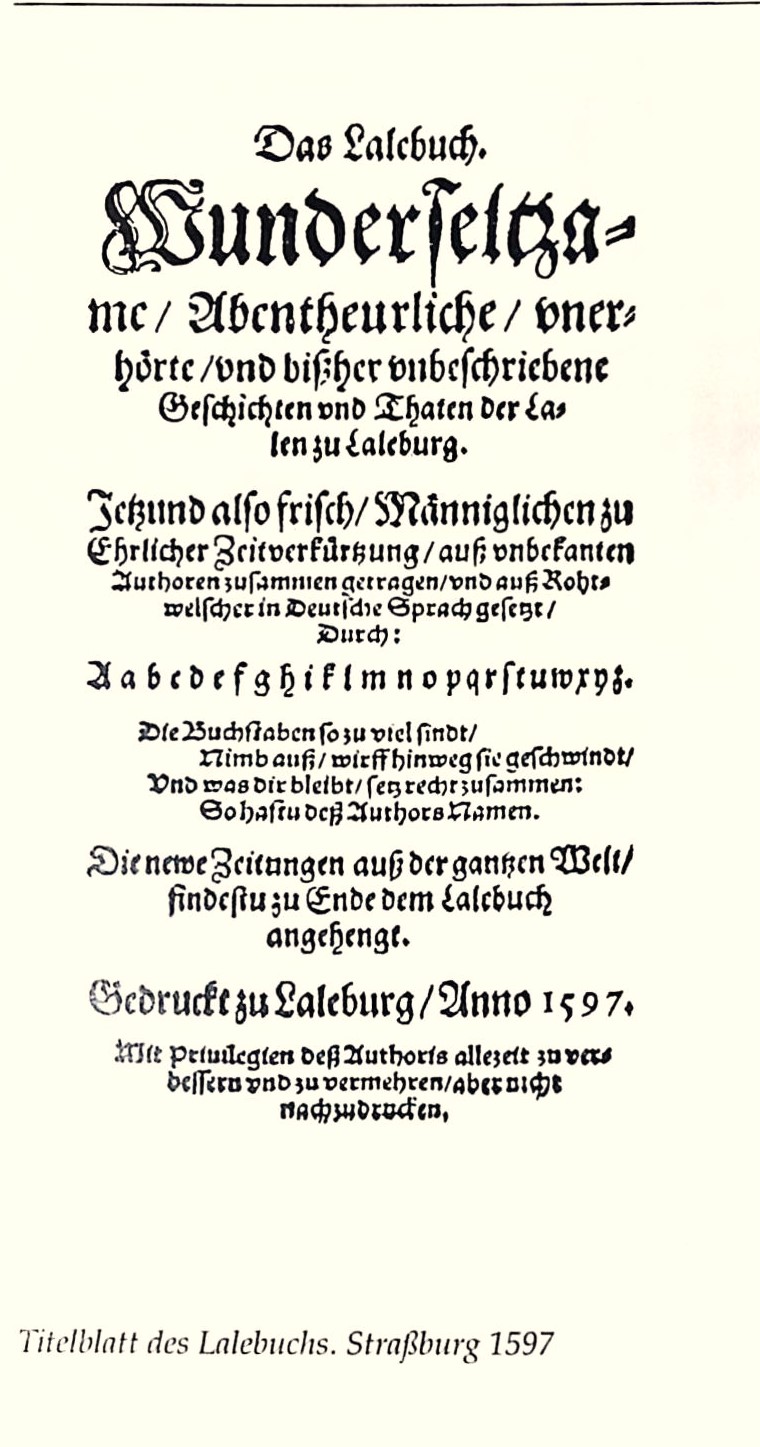 Das Lalebuch.
Wunderseltza-
me / Abentheurliche / vner-
hörte / vnd bißher vnbeschriebene
Geschichten vnd Thaten der La-
len zu Laleburg.
Jetzund also frisch / Männiglichen zu
Ehrlicher Zeitverkürtzung / auß vnbekanten
Authoren zusammen getragen / vnd auß Roht-
welscher in Deutsche Sprach gesetzt /
Durch:
A a b c d e f g h i k l m n o p q r s t u w x y z.
Die Buchstaben so zu viel sindt /
Nimb auß / wirff hinweg sie geschwindt /
Vnd was dir bleibt / setz recht zusammen:
So hastu deß Authors Namen.
Die newe Zeitungen auß der gantzen Welt /
findestu zu Ende dem Lalebuch
angehengt.
Gedruckt zu Laleburg / Anno 1597.
Mit Priuilegien deß Authoris allezeit zu ver-
bessern vnd zu vermehren / aber nicht
nachzudrucken,
Titelblatt des Lalebuchs. Straßburg 1597